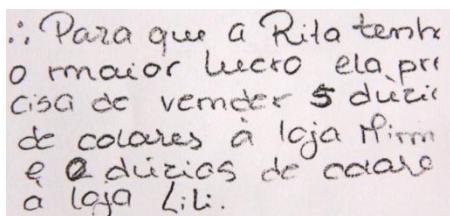 ∴ Para que a Rita tenh
o maior lucro ela pre
cisa de vender 5 dúzi
de colares à loja Mim
e 2 dúzias de colare
à loja Lili.